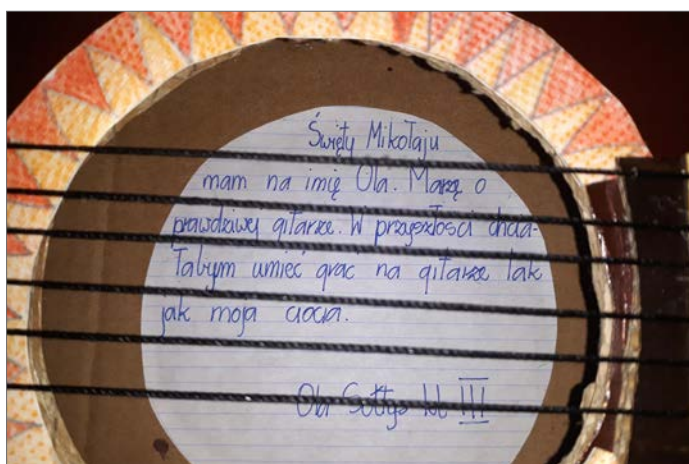 Święty Mikołaju
mam na imię Ola. Marzę o
prawdziwej gitarze. W przyszłości chcia-
łabym umieć grać na gitarze tak
jak moja ciocia.
Ola Sołtys kl III